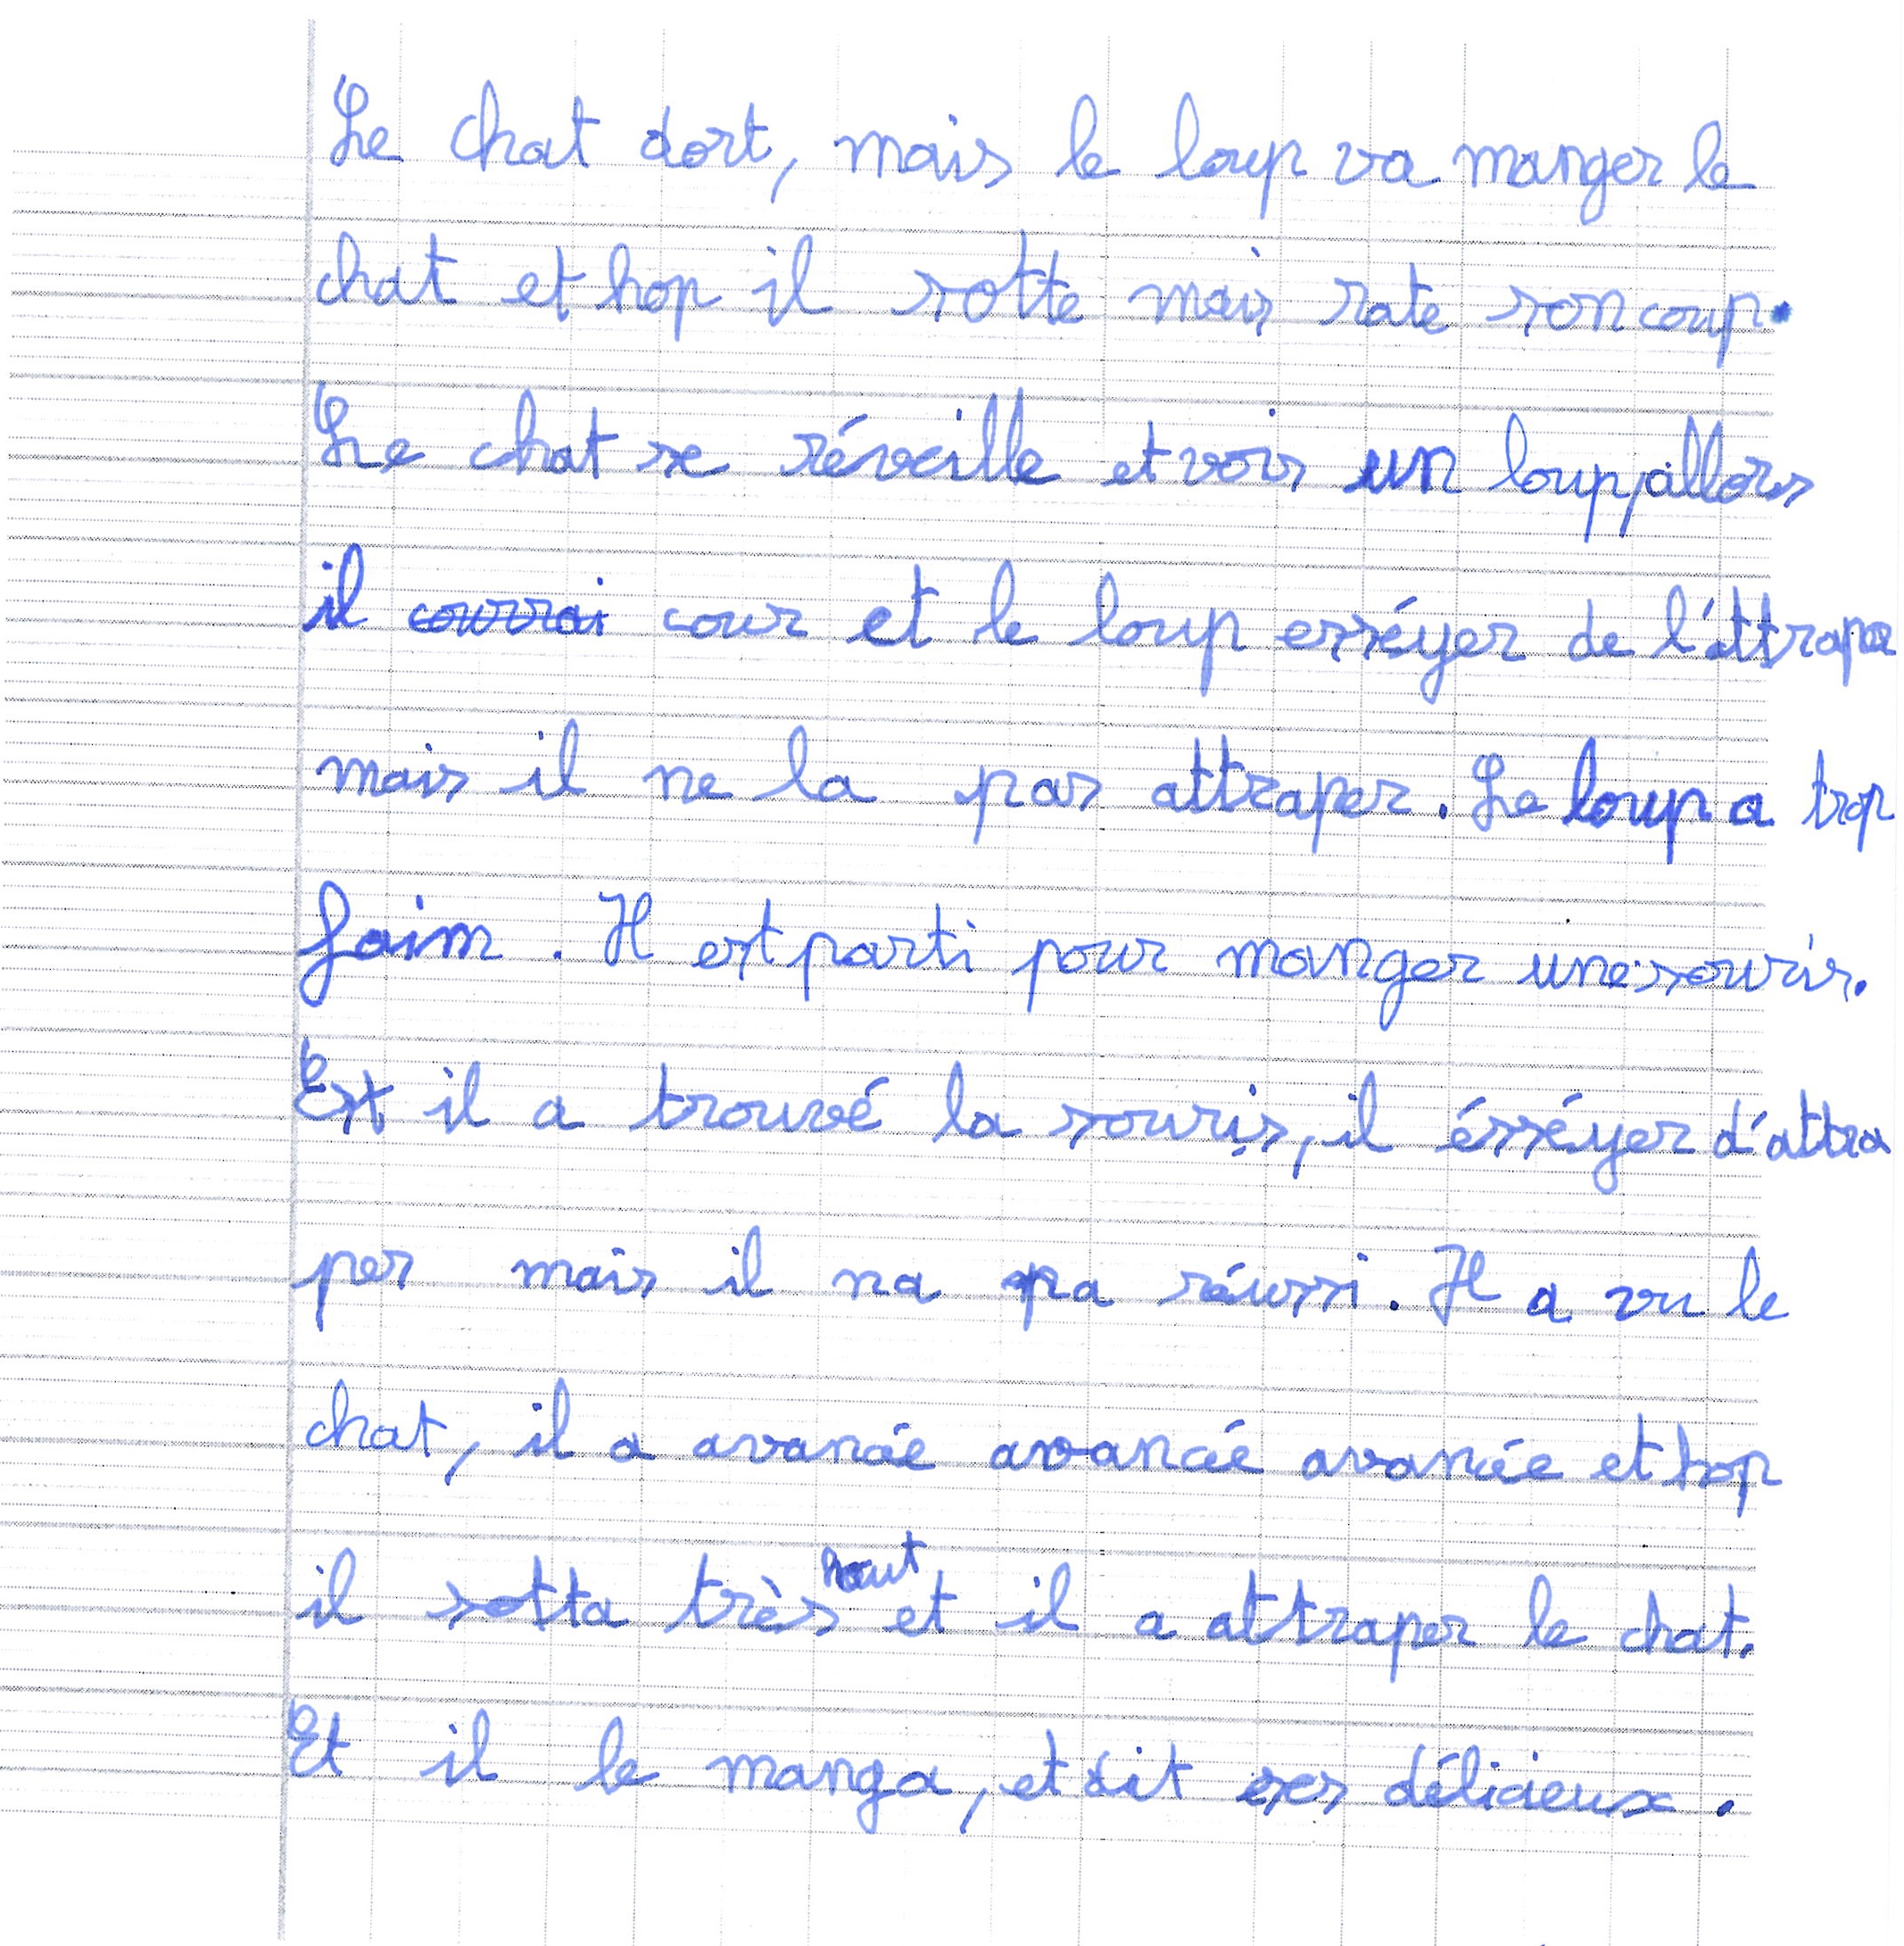 Le chat dort, mais le loup va manger le
chat et hop il sotte mais rate son coup.
Le chat se réveille et vois un loup, allors
il courrai cour et le loup esséyer de l'attraper
mais il ne la pas attraper. Le loup a trop
faim. Il est parti pour manger une souris.
Est il a trouvé la souris, il ésséyer d'attra
per mais il na pa réussi. Il a vu le
chat, il a avancée avancée avancée et hop
il sotta très haut et il a attraper le chat.
Et il le manga, et dit ses délicieux.